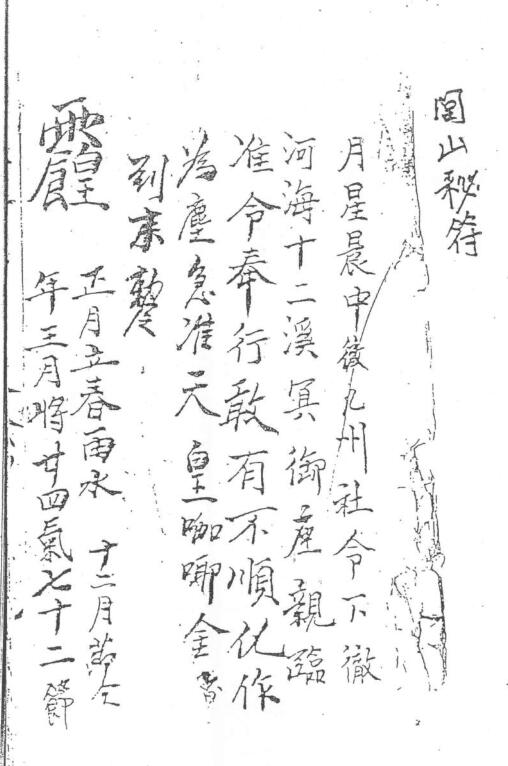 閭山秘符
月星晨中徹九州社令下徹
河海十二溪冥御座親臨
准令奉行敢有不順化作
為塵急准天皇咖唧金
到奉勅令
正月立春雨水 十二月節令
年三月將廿四氣七十二節